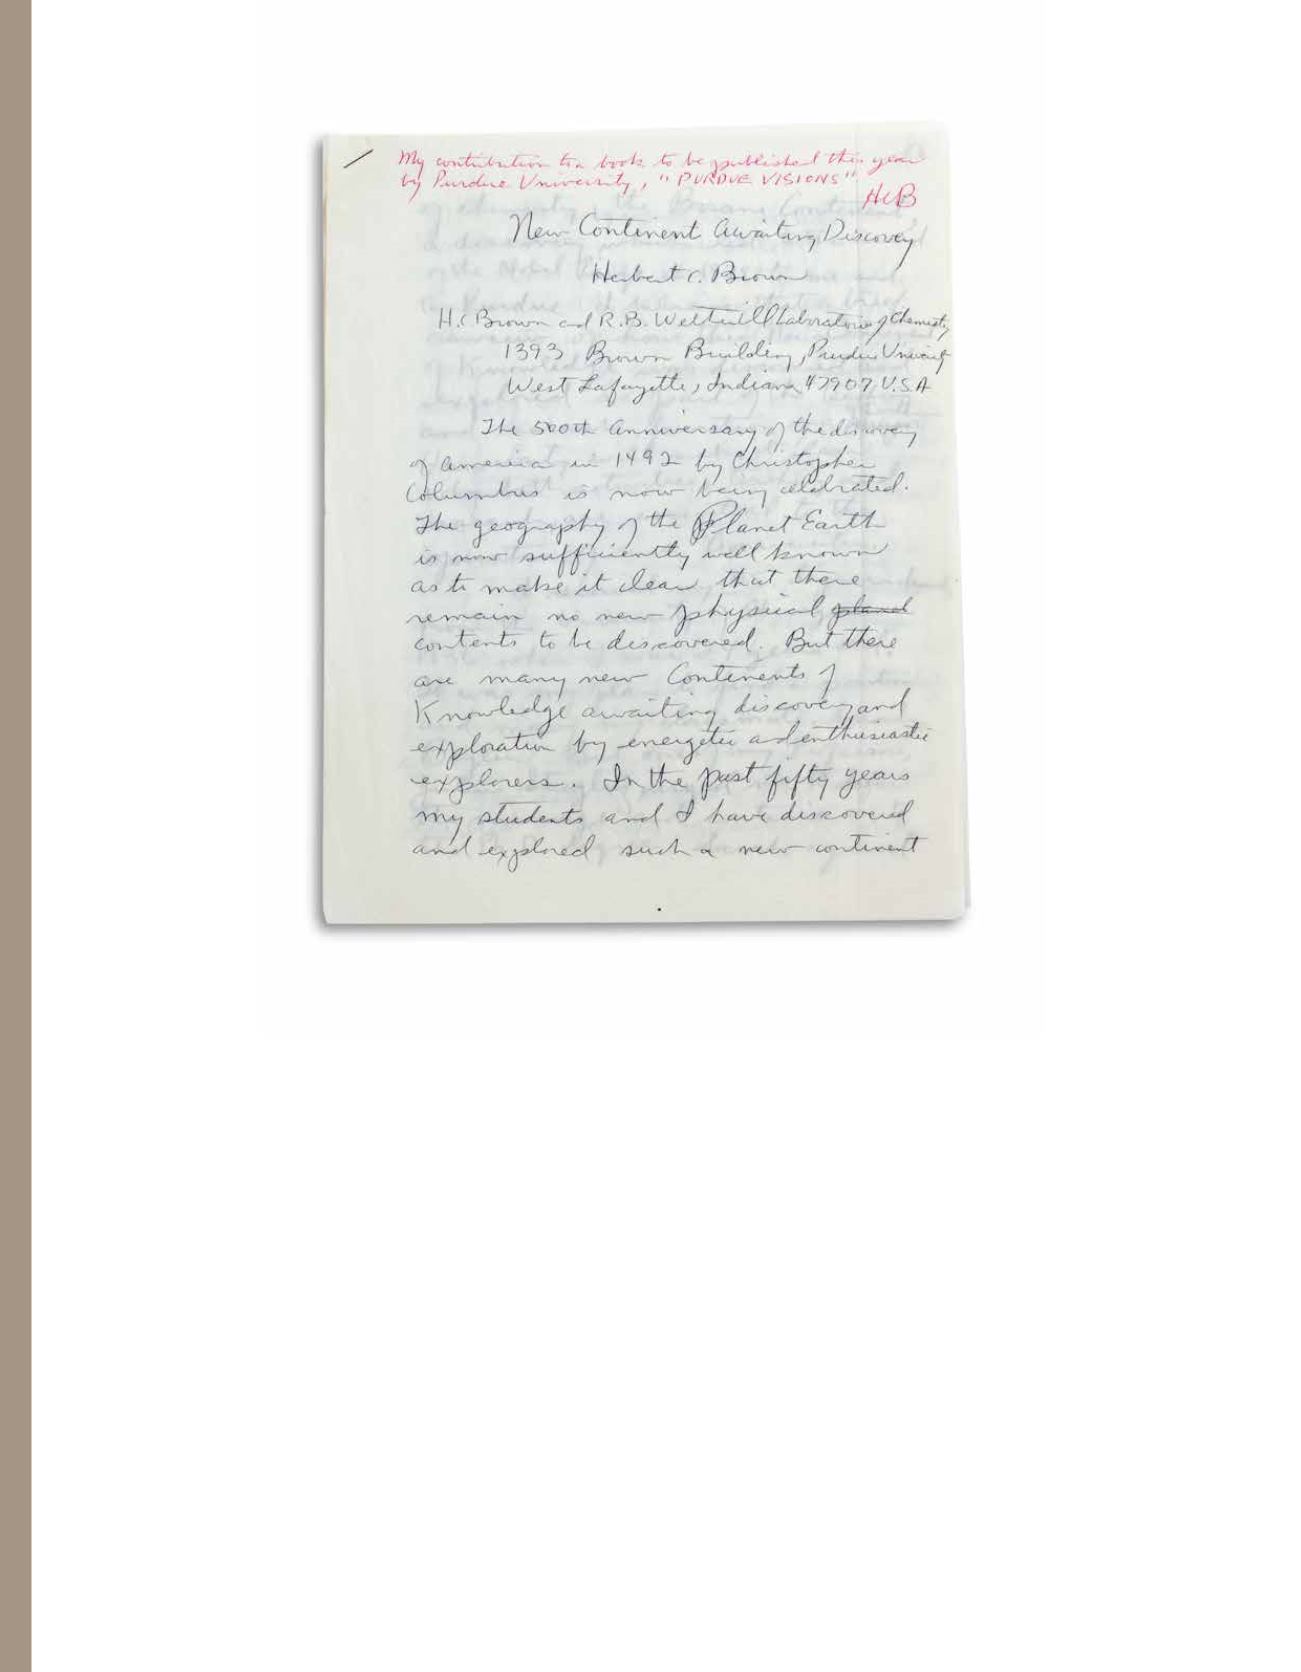 My contribution to a book to be published this year
by Purdue University, "PURDUE VISIONS"
HCB
New Continent Awaiting Discovery
Herbert C. Brown
H.C Brown and R.B. Wetherill Laboratories of Chemistry
1393 Brown Building, Purdue University
West Lafayette, Indiana 47907 U.S.A
The 500th anniversary of the discovery
of America in 1492 by Christopher
Columbus is now being celebrated.
The geography of the Planet Earth
is now sufficiently well known
as to make it clear that there
remain no new physical
contents to be discovered. But there
are many new Continents of
Knowledge awaiting discovery and
exploration by energetic and enthusiastic
explorers. In the past fifty years
my students and I have discovered
and explored such a new continent